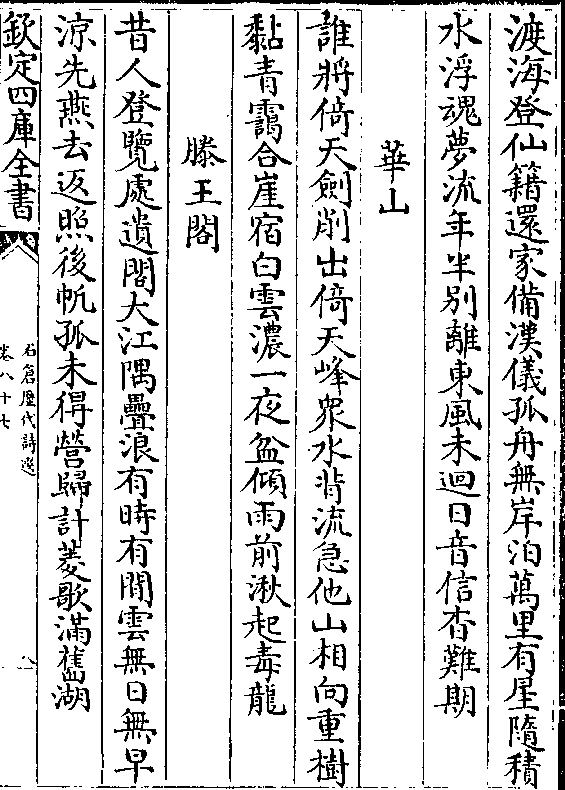 渡海登仙籍還家備漢儀孤舟無岸泊萬里有星隨積
水浮魂夢流年半別離東風未迴日音信杳難期
華山
誰將倚天劍削出倚天峰衆水背流急他山相向重樹
黏青靄合崖宿白雲濃一夜盆傾雨前湫起毒龍
滕王閣
昔人登覽處遺閣大江隅疊浪有時有閒雲無日無早
涼先燕去返照後帆孤未得營歸計菱歌滿舊湖
欽定四庫全書
石倉歷代詩選
卷八十七
八